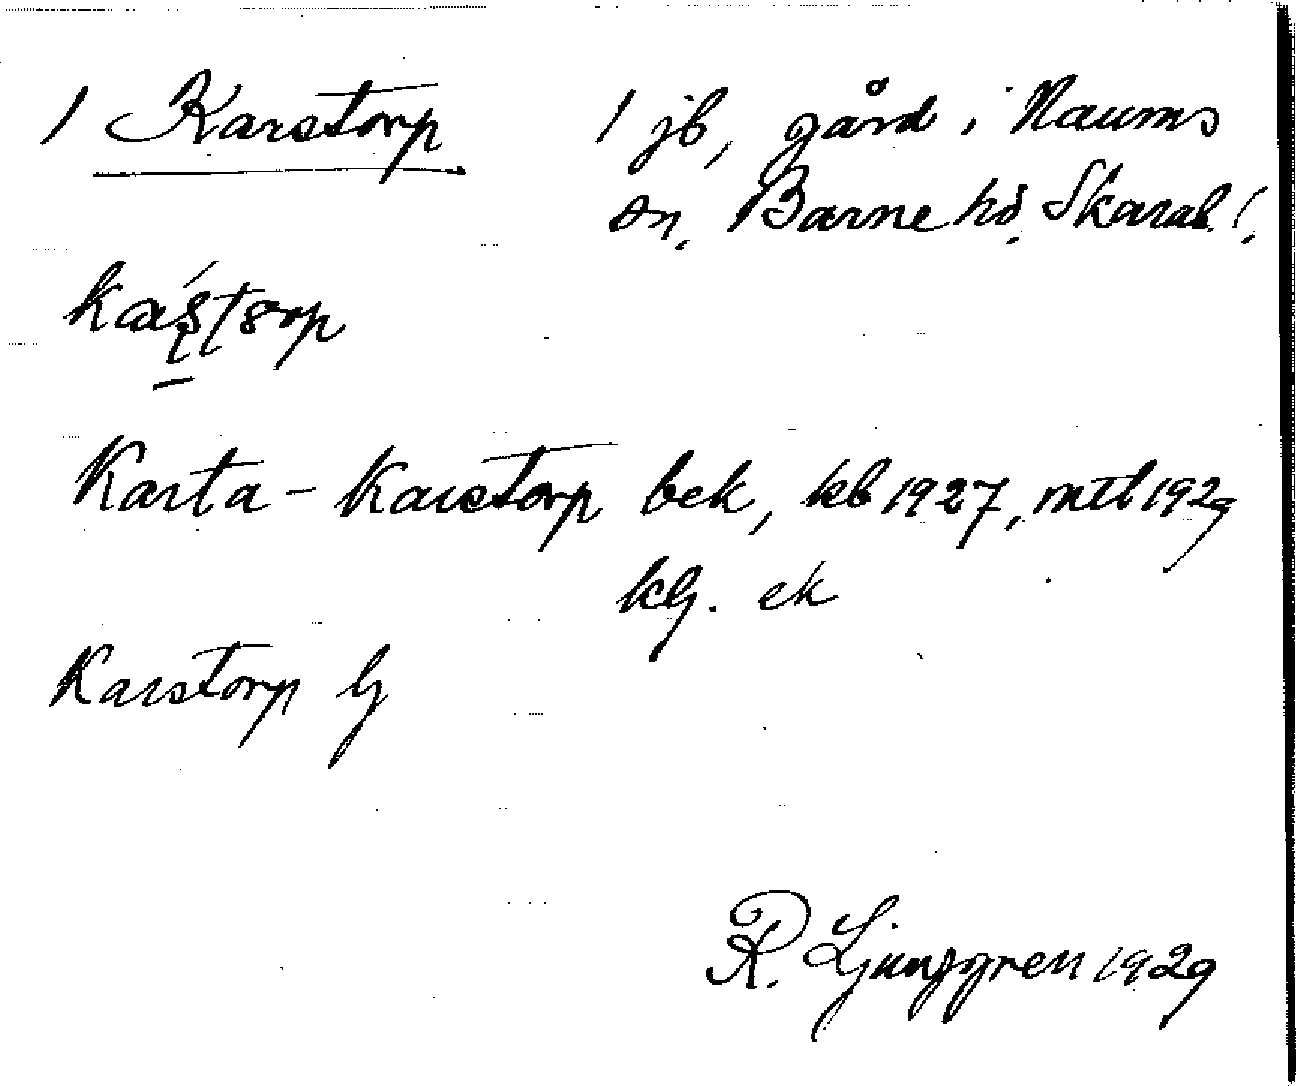 1 Karstorp 1 jb, gård i Naums
sn, Barne hd. Skarab. l.
Karta-Karstorp bek, kb 1927, mtl 1929
klj. ek
Karstorp lj
R. Ljunggren 1929